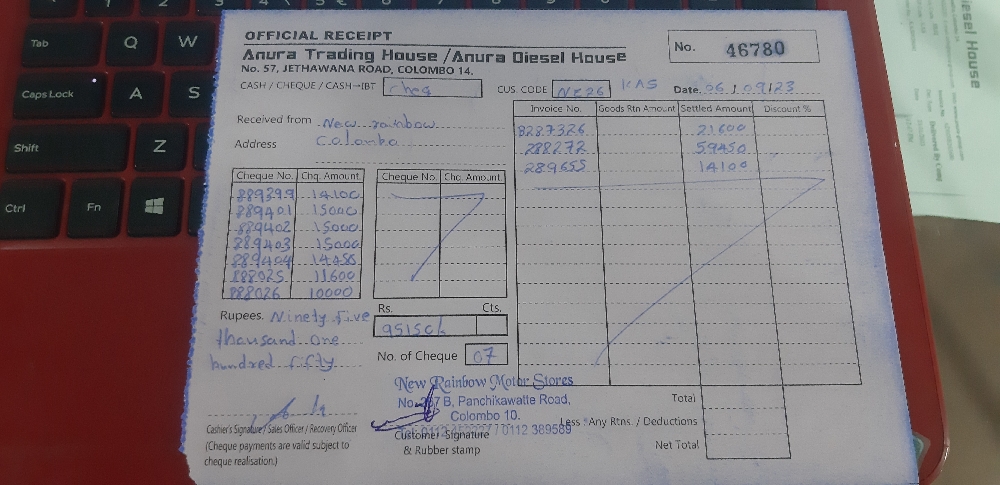 OFFICIAL RECEIPT
Anura Trading House / Anura Diesel House
No. 57, JETHAWANA ROAD, COLOMBO 14.
No. 46780
CASH / CHEQUE / CASH-IBT cheq
CUS. CODE NR26 KAS Date. 06/09/23
Received from New rainbow
Address Colombo
Invoice No. Goods Rtn Amount Settled Amount Discount %
8287326 21600
288272 59450
289655 14100
Cheque No. Chq. Amount. Cheque No. Chq. Amount.
889399 14100
889401 15000
889402 15000
889403 15000
889404 14450
888025 11600
888026 10000
Rupees. Ninety five
thousand one
hundred fifty
Rs. Cts.
95150/-
No. of Cheque 07
New Rainbow Motor Stores
B, Panchikawatte Road,
Colombo 10.
0112 389589
Cashier's Signature / Sales Officer / Recovery Officer
(Cheque payments are valid subject to
cheque realisation.)
Customer Signature
& Rubber stamp
Total
Less : Any Rtns. / Deductions
Net Total
Tab Q W
Caps Lock A S
Shift Z
Ctrl Fn
iesel House